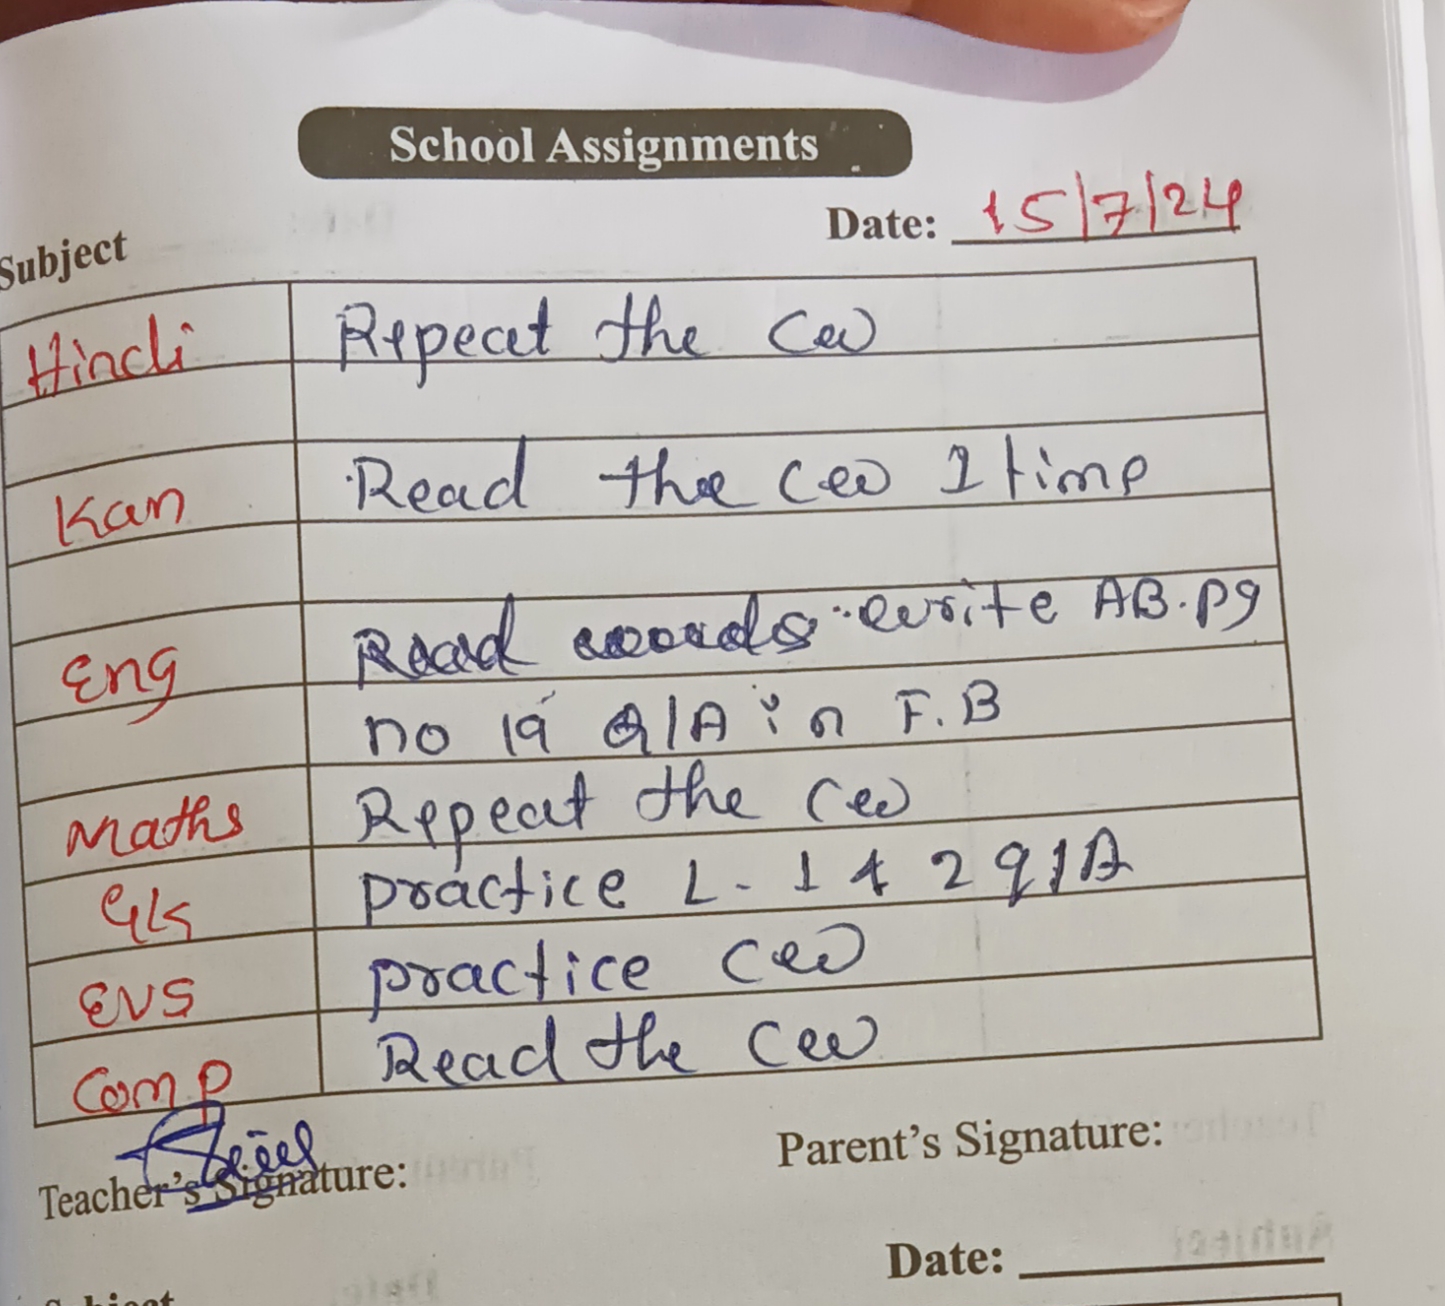 School Assignments
Date: 15/7/24
Subject
Hindi Repeat the cw
Kan Read the cw 1 time
Eng Read words write AB.pg
no 19 Q/A in F.B
Maths Repeat the cw
GK practice L-1 & 2 q/A
EVS practice cw
Comp Read the cw
Teacher's Signature:
Parent's Signature:
Date:
Subject